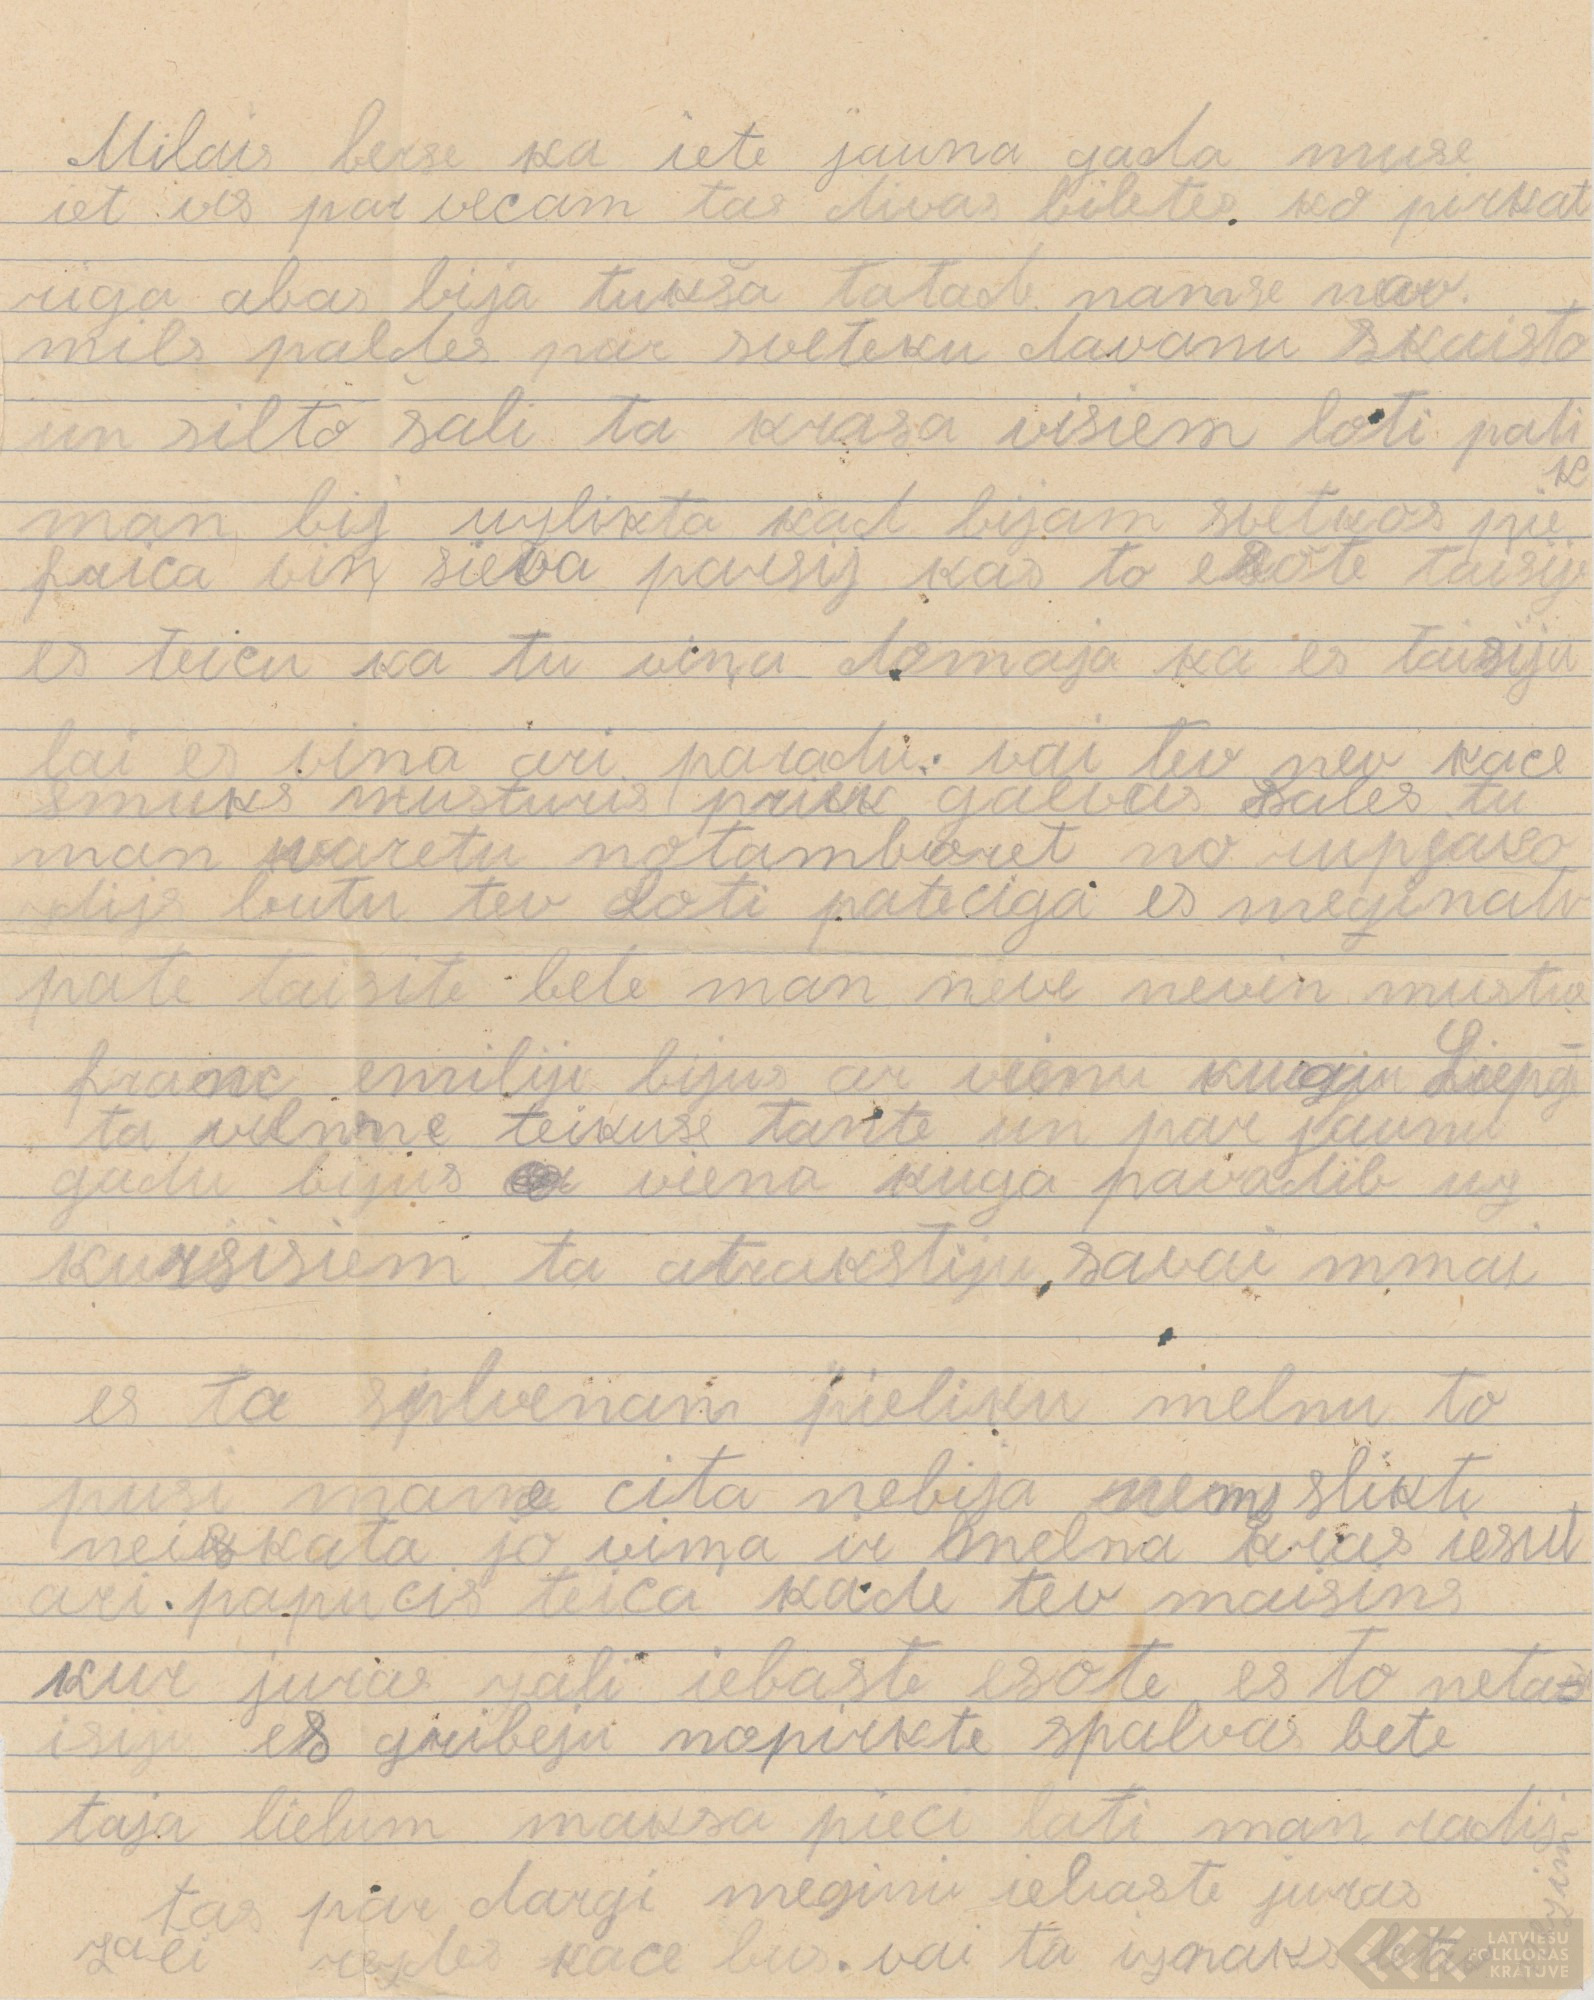 Milais berse ka iete jauna gada muse
iet vis par vecam tas divas biletes. ko pirkat
riga abas bija tukša tatad namse nav.
mils paldes par svetku davanu skaisto
un silto šali ta krasa visiem loti pati
k
man bij uzlikta kad bijam svetkos pie
fraica viņ sieva parsij kas to esote taisije
es teicu ka tu viņa domaja ka es taisiju
lai es vina ari paradu. vai tev nev kace
smuks musturis priek galvas sales tu
man waretu notamboret no rupjako
dijs butu tev loti pateciga es meginatu
pate taisite bete man neve nevin mustu
franc emiliju bijus ar vienu kugju Liepā
ta vilnine teikuse tante un par jaunu
gadu bijus viena kuga pavadib uz
kuršisiem ta atrakstiju, savai mmai
es ta spilvenam pieliku melnu to
pusi mana cita nebija nemz slikti
neiskata jo viņa ir melna kras iesut
ari. papucis teica kade tev maisins
kur juras zali iebaste esote es to neta
isiju es gribeju nopirkte spalvas bete
taja lielum maksa pieci lati man radij
tas par dargi meginu iebaste juras
zali kace bus. vai ta iznaks letak
LATVIEŠU
FOLKLORAS
KRĀTUVE